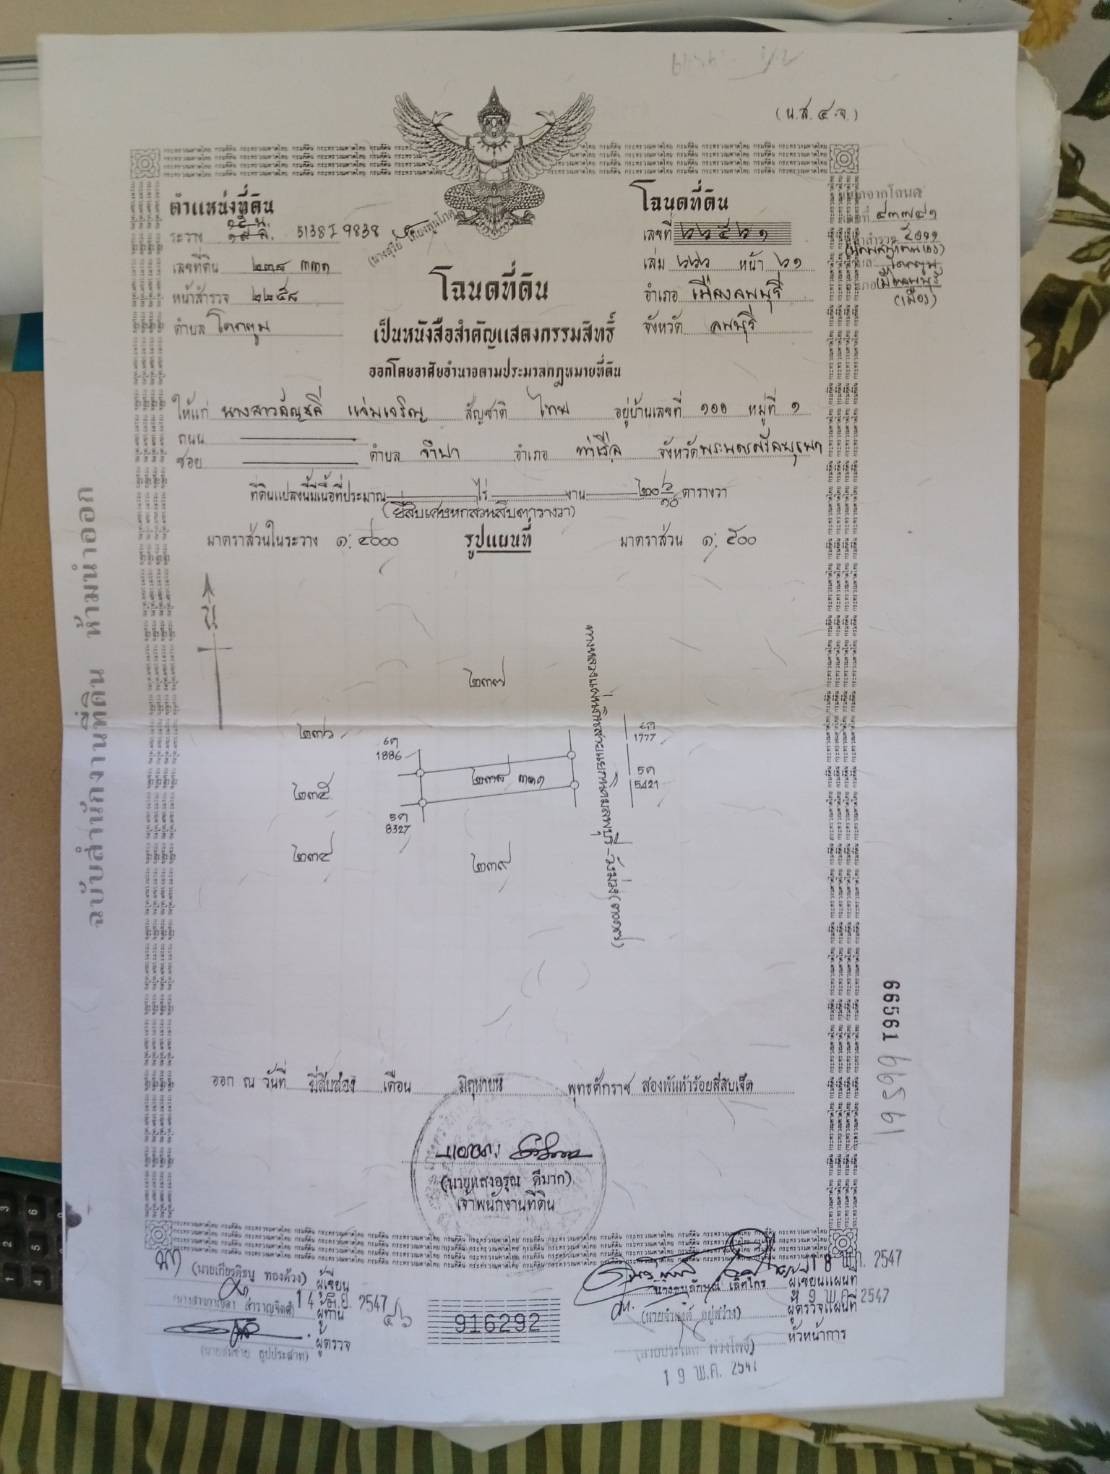 (น.ส. ๔ จ.)
ตำแหน่งที่ดิน
ระวาง 5138 I 9838
เลขที่ดิน ๒๓๘
หน้าสำรวจ ๒๒๕๘
ตำบล โคกตูม
โฉนดที่ดิน
เลขที่ ๖๖๕๖๑
เล่ม ๖๖๖ หน้า ๖๑
อำเภอ เมืองลพบุรี
จังหวัด ลพบุรี
โฉนดที่ดิน
เป็นหนังสือสำคัญแสดงกรรมสิทธิ์
ออกโดยอาศัยอำนาจตามประมวลกฎหมายที่ดิน
ให้แก่ นางสาวอัญชลี แจ่มเจริญ สัญชาติ ไทย อยู่บ้านเลขที่ ๑๐๐ หมู่ที่ ๑
ถนน
ซอย ตำบล จำปา อำเภอ ท่าเรือ จังหวัด พระนครศรีอยุธยา
ที่ดินแปลงนี้มีเนื้อที่ประมาณ ไร่ งาน ๒๐ ๖/๑๐ ตารางวา
(ยี่สิบเศษหกส่วนสิบตารางวา)
มาตราส่วนในระวาง ๑:๔๐๐๐ รูปแผนที่ มาตราส่วน ๑:๕๐๐
น
๒๓๗
๒๓๖
๒๓๕
๒๓๔
๒๓๙
1886
1777
5421
8327
ฉบับสำนักงานที่ดิน ห้ามนำออก
66561
66561
ออก ณ วันที่ ยี่สิบสอง เดือน มิถุนายน พุทธศักราช สองพันห้าร้อยสี่สิบเจ็ด
(นายแสงอรุณ ดีมาก)
เจ้าพนักงานที่ดิน
ผู้เขียน
ผู้ทาน
ผู้ตรวจ
916292
ผู้เขียนแผนที่
ผู้ตรวจแผนที่
หัวหน้าการ
18 พ.ค. 2547
19 พ.ค. 2547
19 พ.ค. 2547